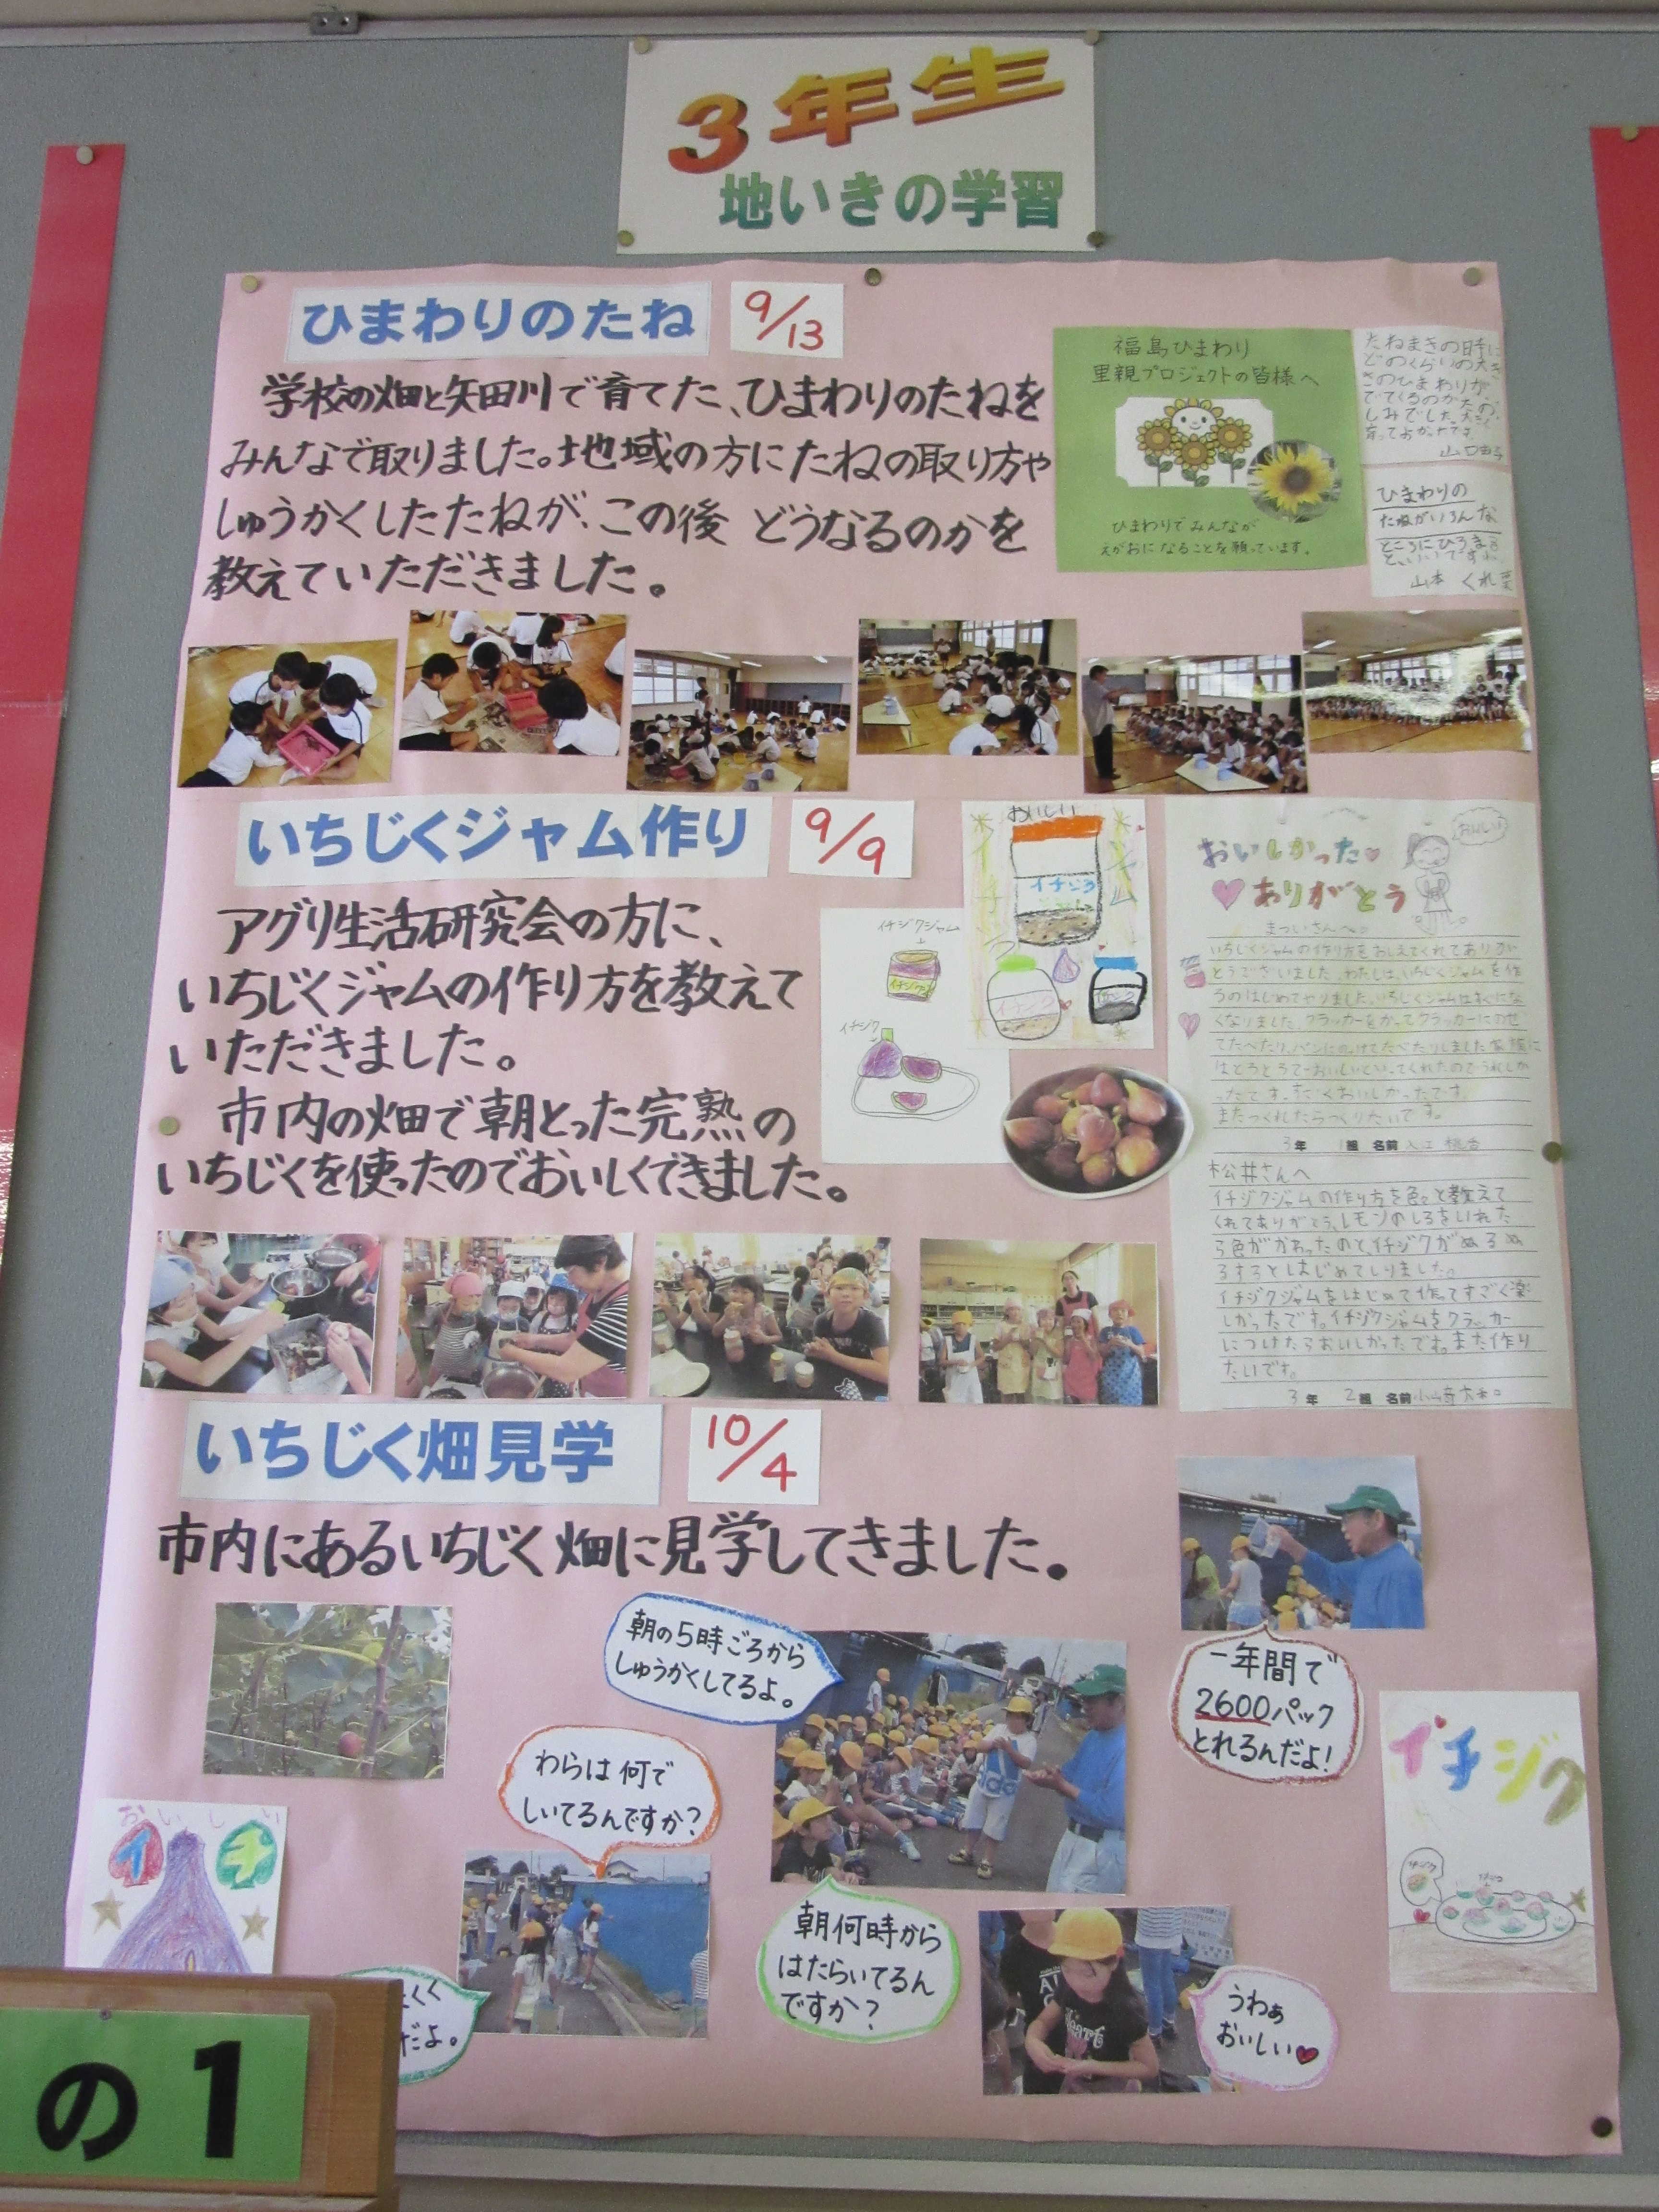 3年生
地いきの学習
ひまわりのたね
9/13
学校の畑と矢田川で育てた、ひまわりのたねを
みんなで取りました。地域の方にたねの取り方や
しゅうかくしたたねが、この後どうなるのかを
教えていただきました。
福島ひまわり
里親プロジェクトの皆様へ
ひまわりでみんなが
えがおになることを願っています。
たねまきの時に
どのくらいの大き
さのひまわりが
でてくるのかたの
しみでした。
ひまわりの
たねがいろんな
ところにひろまる
といいですね
山本 くれ
いちじくジャム作り
9/9
アグリ生活研究会の方に、
いちじくジャムの作り方を教えて
いただきました。
市内の畑で朝とった完熟の
いちじくを使ったのでおいしくできました。
おいしい
イチジク
イチジク
イチジクジャム
イチジク
イチジク
おいしい
おいしかった
ありがとう
まついさんへ
いちじくジャムの作り方をおしえてくれてありが
とうございました。わたしは、いちじくジャムを作
るのはじめてやりました。いちじくジャムはすぐにな
くなりました。クラッカーをかってクラッカーにのせ
てたべたり、パンにつけてたべたりしました家族に
はとうとうでーおいしいといってくれたのでうれしか
ったです。すごくおいしかったです。
またつくれたらつくりたいです。
3年 1組 名前
松井さんへ
イチジクジャムの作り方を色々と教えて
くれてありがとう。レモンのしるをいれた
ら色がかわったのと、イチジクがぬるぬ
るするとはじめてしりました。
イチジクジャムをはじめて作ってすごく楽
しかったです。イチジクジャムをクラッカー
につけたらおいしかったです。また作り
たいです。
3年 2組 名前
いちじく畑見学
10/4
市内にあるいちじく畑に見学してきました。
朝の5時ごろから
しゅうかくしてるよ。
一年間で
2600パック
とれるんだよ!
わらは何で
しいてるんですか?
イチジク
イチジク
おいしい
イチ
朝何時から
はたらいてるん
ですか?
だよ。
うわぁ
おいしい♥
の1